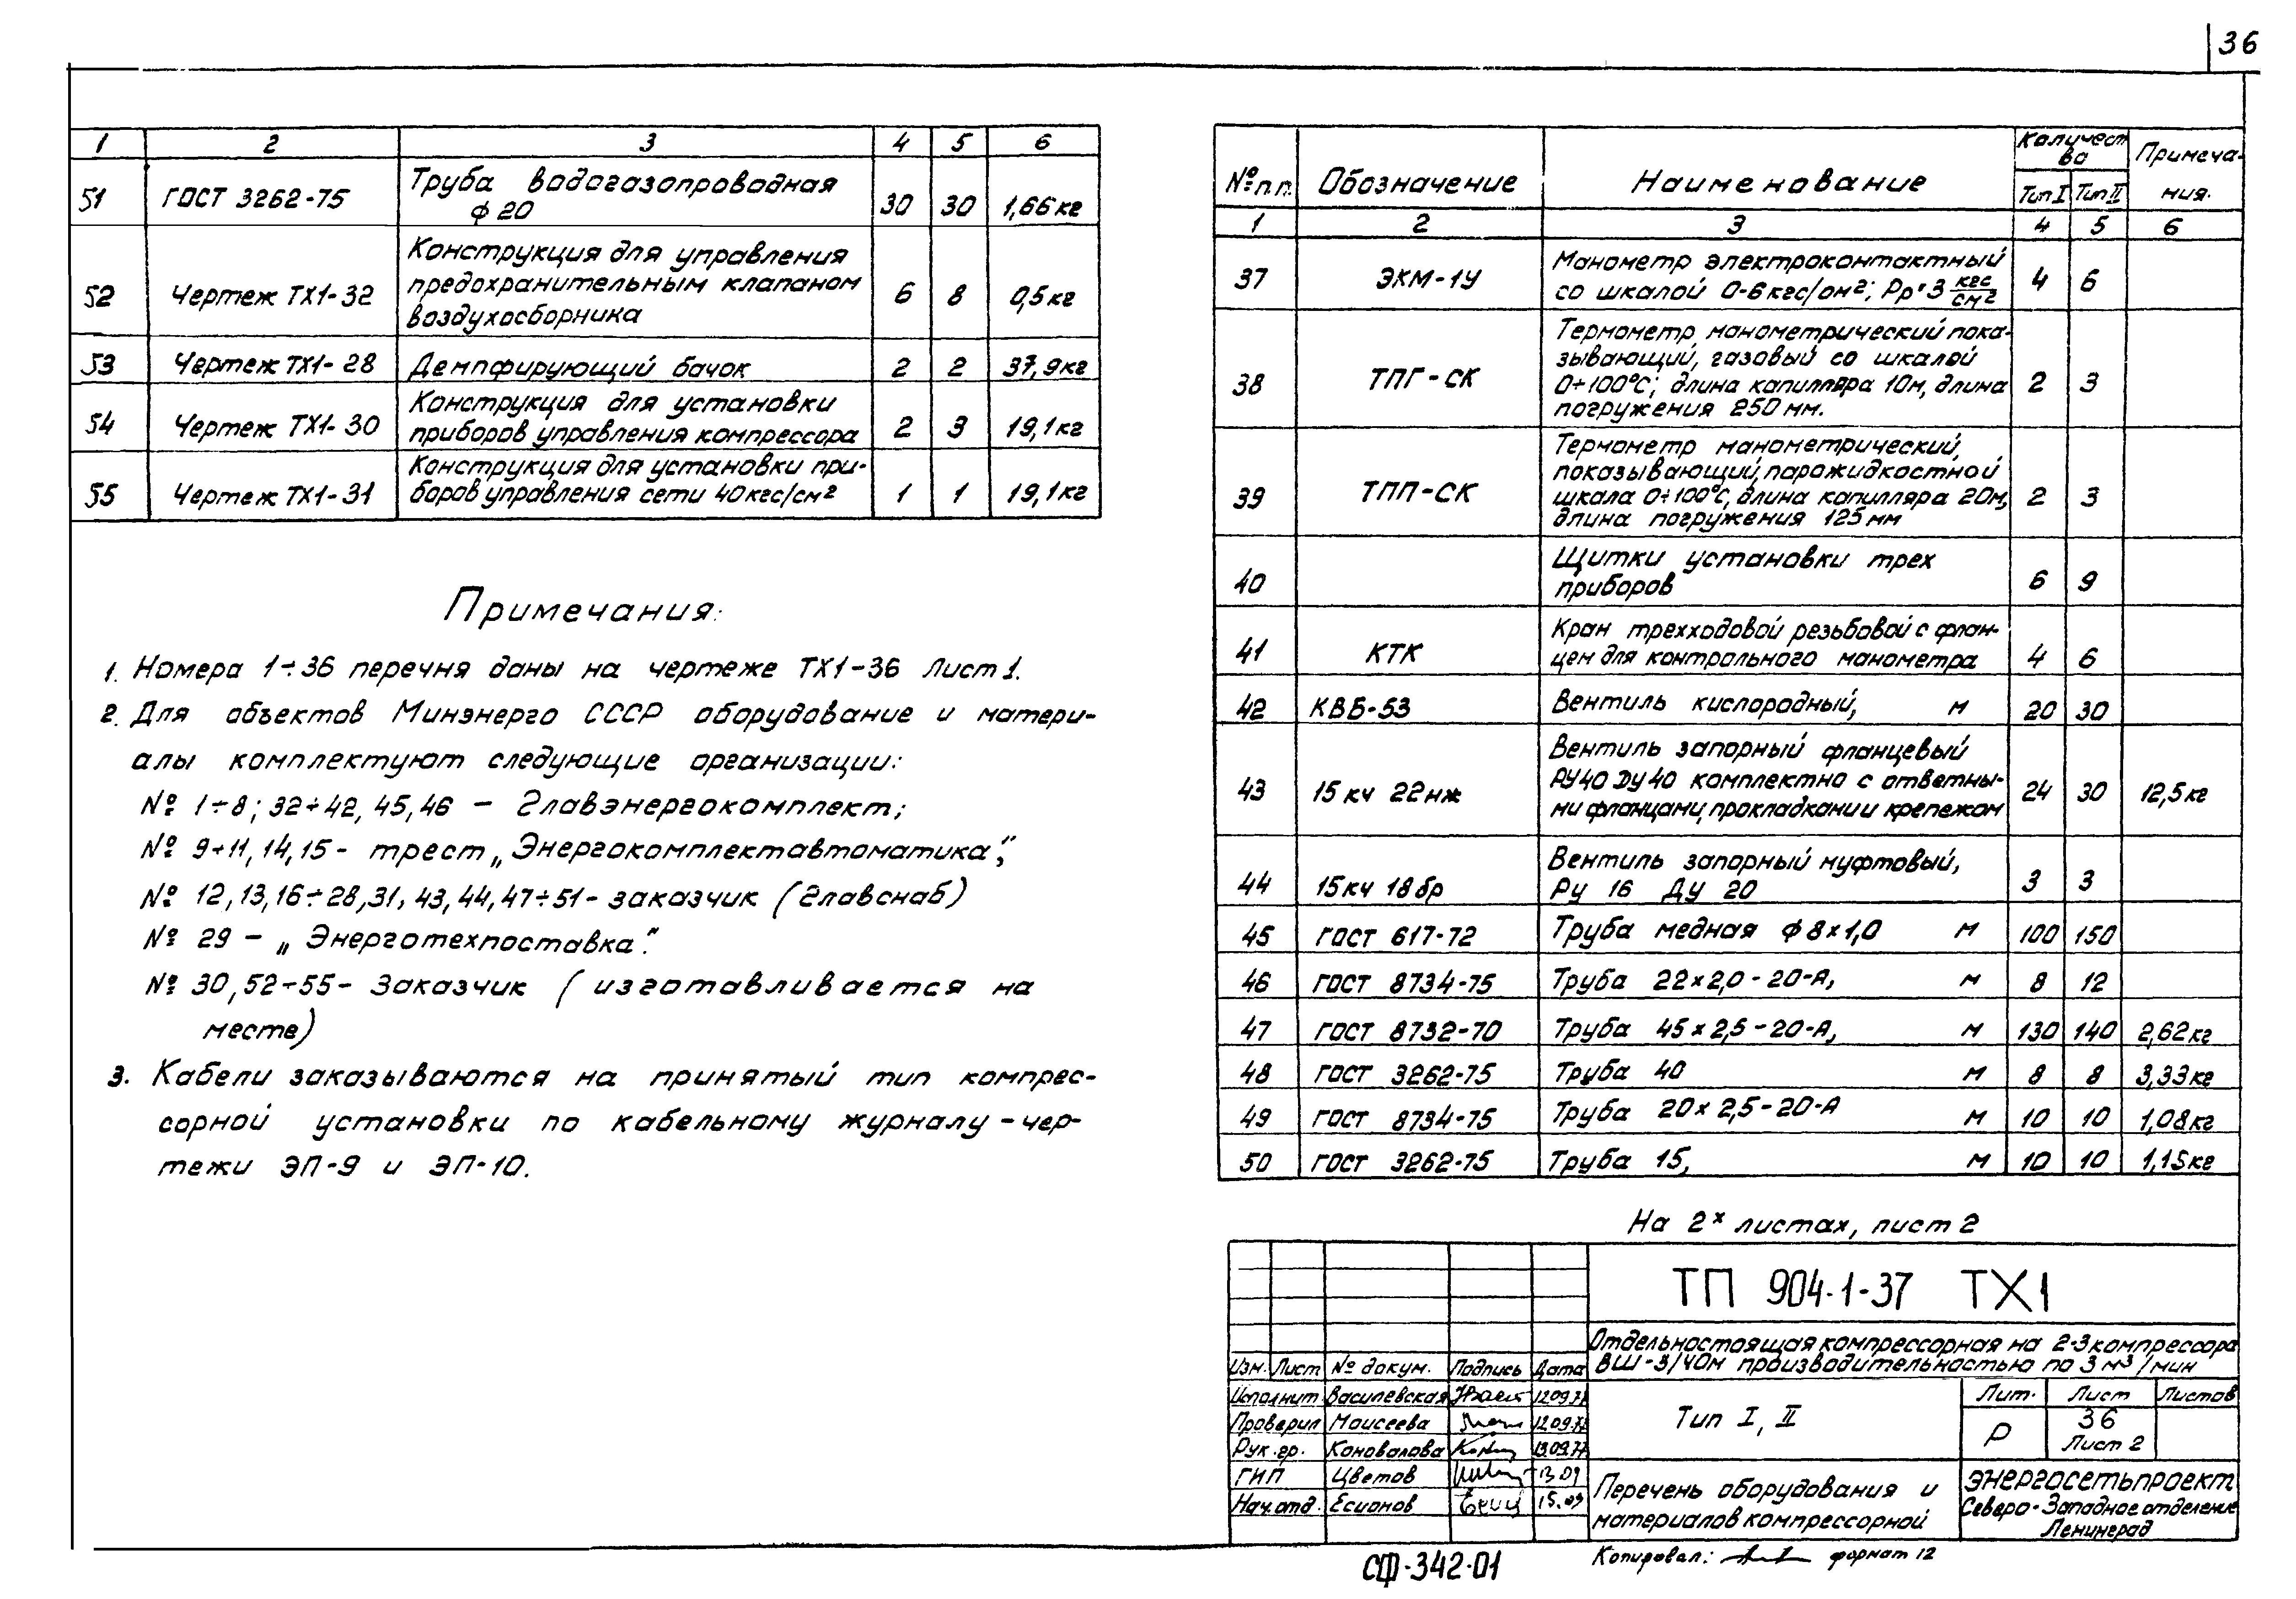 36
1 2 3 4 5 6
51 ГОСТ 3262-75 Труба водогазопроводная
ф 20 30 30 1,66кг
Конструкция для управления
52 Чертеж ТХ1-32 предохранительным клапаном 6 8 0,5кг
воздухосборника
53 Чертеж ТХ1-28 Демпфирующий бачок 2 2 37,9кг
Конструкция для установки
54 Чертеж ТХ1-30 приборов управления компрессора 2 3 19,1кг
Конструкция для установки при-
55 Чертеж ТХ1-31 боров управления сети 40кгс/см² 1 1 19,1кг
Примечания:
1. Номера 1÷36 перечня даны на чертеже ТХ1-36 Лист 1.
2. Для объектов Минэнерго СССР оборудование и матери-
алы комплектуют следующие организации:
№ 1÷8; 32÷42, 45,46 – Главэнергокомплект;
№ 9÷11, 14,15- трест „Энергокомплектавтоматика";
№ 12,13,16÷28,31, 43,44,47÷51- заказчик (Главснаб)
№ 29 – „Энерготехпоставка".
№ 30,52÷55- Заказчик (изготавливается на
месте)
3. Кабели заказываются на принятый тип компрес-
сорной установки по кабельному журналу – чер-
тежи ЭП-9 и ЭП-10.
№ п.п. Обозначение Наименование Количест Примеча-
ва
Тип I Тип II ния.
1 2 3 4 5 6
37 ЭКМ-1У Манометр электроконтактный 4 6
со шкалой 0-6кгс/см²; Рр=3 кгс/см²
Термометр манометрический пока-
зывающий, газовый со шкалой
38 ТПГ-СК 0÷100°С; длина капилляра 10м, длина 2 3
погружения 250мм.
Термометр манометрический,
показывающий, парожидкостной
39 ТПП-СК шкала 0÷100°С, длина капилляра 20м, 2 3
длина погружения 125мм
40 Щитки установки трех 6 9
приборов
Кран трехходовой резьбовой с флан-
41 КТК цем для контрольного манометра 4 6
42 КВБ-53 Вентиль кислородный, м 20 30
Вентиль запорный фланцевый
43 15кч 22нж РУ40 Ду40 комплектно с ответны- 24 30 12,5кг
ми фланцами, прокладками и крепежом
Вентиль запорный муфтовый,
44 15кч 18бр Ру 16 Ду 20 3 3
45 ГОСТ 617-72 Труба медная ф 8×1,0 м 100 150
46 ГОСТ 8734-75 Труба 22×2,0-20-А, м 8 12
47 ГОСТ 8732-70 Труба 45×2,5-20-А, м 130 140 2,62кг
48 ГОСТ 3262-75 Труба 40 м 8 8 3,33кг
49 ГОСТ 8734-75 Труба 20×2,5-20-А м 10 10 1,08кг
50 ГОСТ 3262-75 Труба 15, м 10 10 1,15кг
На 2х листах, лист 2
ТП 904-1-37 ТХ1
Отдельностоящая компрессорная на 2-3 компрессора
ВШ-3/40м производительностью по 3 м³/мин
Изм. Лист № докум. Подпись Дата
Исполнит Василевская 12.09.77
Проверил Моисеева 12.09.77
Рук.гр. Коновалова 13.09.77
ГИП Цветов 13.09
Нач.отд. Есионов 15.09
Тип I, II
Лит. Лист Листов
Р 36
Лист 2
Перечень оборудования и
материалов компрессорной
ЭНЕРГОСЕТЬПРОЕКТ
Северо-Западное отделение
Ленинград
СФ-342-01 Копировал: формат 12